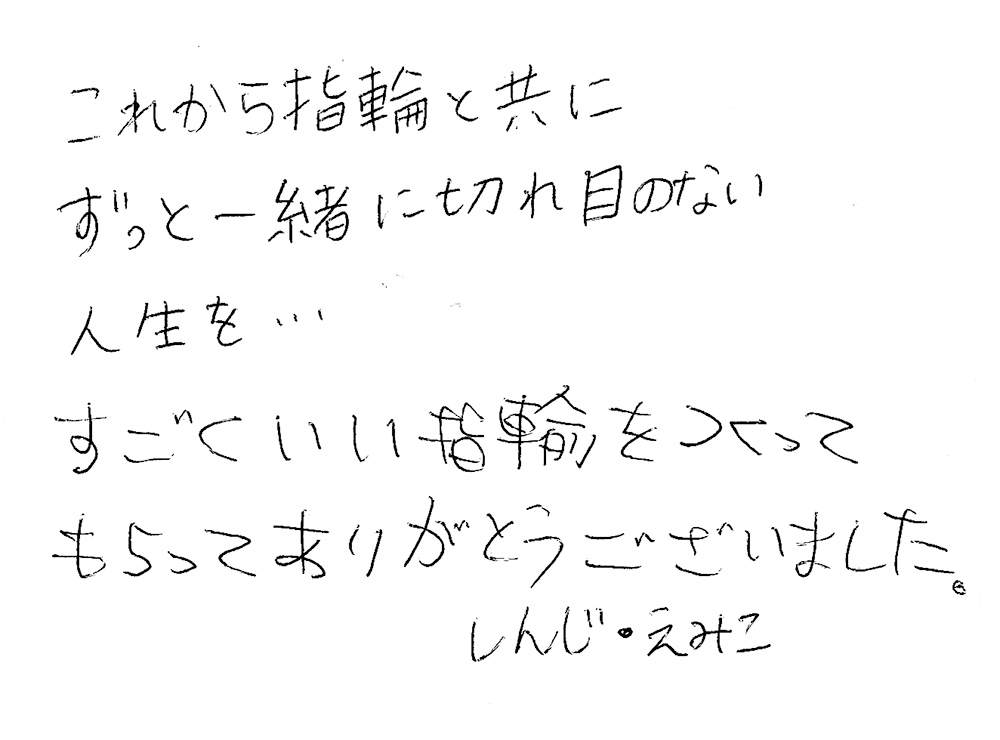 これから指輪と共に
ずっと一緒に切れ目のない
人生を…
すごくいい指輪をつくって
もらってありがとうございました。
しんじ・えみこ